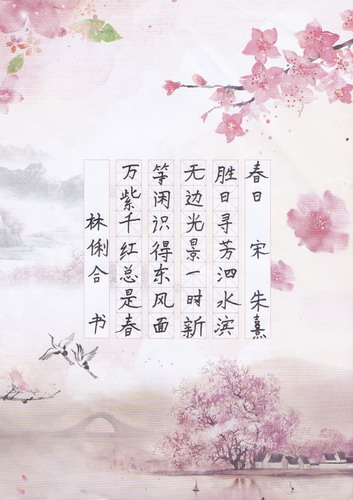 春日 宋 朱熹
胜日寻芳泗水滨
无边光景一时新
等闲识得东风面
万紫千红总是春
林俐合 书